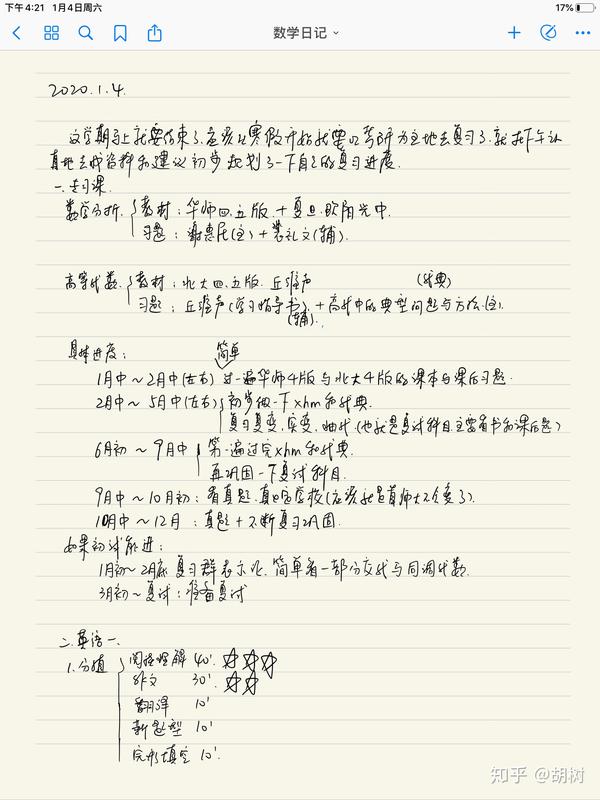 下午4:21 1月4日周六 17%
数学日记
2020.1.4.
这学期马上就要结束了.应该从寒假开始就要以考研为主地去复习了.就在下午认
真地去找资料和建议初步规划了一下自己的复习进度.
一.专业课.
数学分析. 教材:华师四、五版. + 复旦.欧阳光中.
习题:谢惠民(主)+裴礼文(辅).
高等代数. 教材:北大四、五版. 丘维声
(代典)
习题:丘维声(学习指导书). + 高代中的典型问题与方法(主).
(辅).
具体进度:
简单
1月中~2月中(左右) 过一遍华师4版与北大4版的课本与课后习题.
2月中~5月中(左右) 初步做一下xhm和代典.
复习复变,实变,抽代.(也就是复试科目.主要看书和课后题)
6月初~9月中 第一遍过完xhm和代典.
再巩固一下复试科目.
9月中~10月初:看真题.真正定学校(应该就是首师大不会变了).
10月中~12月:真题+不断复习巩固.
如果初试能进:
1月初~2月底 复习群表示论.简单看一部分交代与同调代数.
3月初~复试:准备复试
二.英语一.
1.分值 阅读理解 40' ☆☆☆
作文 30' ☆☆
翻译 10'
新题型 10'
完形填空 10'
知乎 @胡树